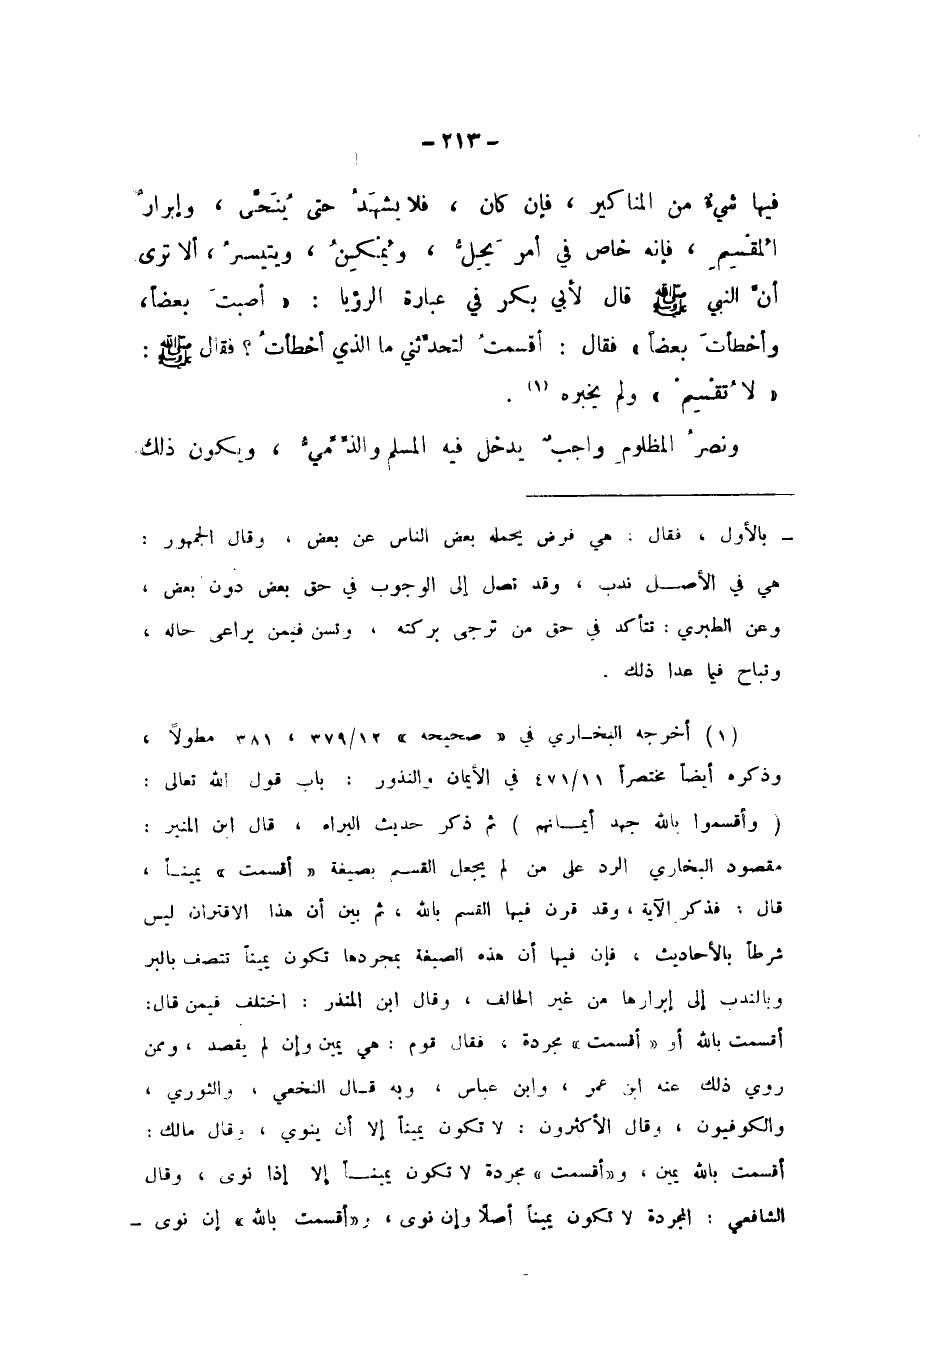 - ٢١٣ -
فيها شيءٌ من المناكير ، فإن كان ، فلا يشهَدُ حتى يُنَحَّى ، وإبرارُ
المُقْسِمِ ، فإنه خاص في أمر يَجِلُّ ، ويُمْكِنُ ، ويتيسرُ ، ألا ترى
أنَّ النبي ﷺ قال لأبي بكر في عبارة الرؤيا : « أصبتَ بعضاً،
وأخطأتَ بعضاً » فقال : أقسمتُ لتحدثَنّي ما الذي أخطأتُ ؟ فقال ﷺ :
« لا تُقْسِمْ » ولم يخبره (١) .
ونصرُ المظلومِ واجبٌ يدخل فيه المسلم والذِّمِّيُّ ، ويكون ذلك
ــ بالأول ، فقال : هي فرض يحمله بعض الناس عن بعض ، وقال الجمهور :
هي في الأصــل ندب ، وقد تصل إلى الوجوب في حق بعض دون بعض ،
وعن الطبري : تتأكد في حق من ترجى بركته ، وتسن فيمن يراعى حاله ،
وتباح فيما عدا ذلك .
(١) أخرجه البخـاري في « صحيحه » ٣٧٩/١٢ ، ٣٨١ مطولاً ،
وذكره أيضاً مختصراً ٤٧١/١١ في الأيمان والنذور : باب قول الله تعالى :
( وأقسموا بالله جهد أيمــانهم ) ثم ذكر حديث البراء ، قال ابن المنير :
مقصود البخاري الرد على من لم يجعل القسم بصيغة « أقسمت » يمينـاً ،
قال : فذكر الآية ، وقد قرن فيها القسم بالله ، ثم بين أن هذا الاقتران ليس
شرطاً بالأحاديث ، فإن فيها أن هذه الصيغة بمجردها تكون يميناً تتصف بالبر
وبالندب إلى إبرارها من غير الحالف ، وقال ابن المنذر : اختلف فيمن قال:
أقسمت بالله أو « أقسمت » مجردة ، فقال قوم : هي يمين وإن لم يقصد ، وممن
روي ذلك عنه ابن عمر ، وابن عباس ، وبه قـال النخعي ، والثوري ،
والكوفيون ، وقال الأكثرون : لا تكون يميناً إلا أن ينوي ، وقال مالك :
أقسمت بالله يمين ، و«أقسمت » مجردة لا تكون يمينــاً إلا إذا نوى ، وقال
الشافعي : المجردة لا تكون يميناً أصلًا وإن نوى ، و«أقسمت بالله» إن نوى ــ